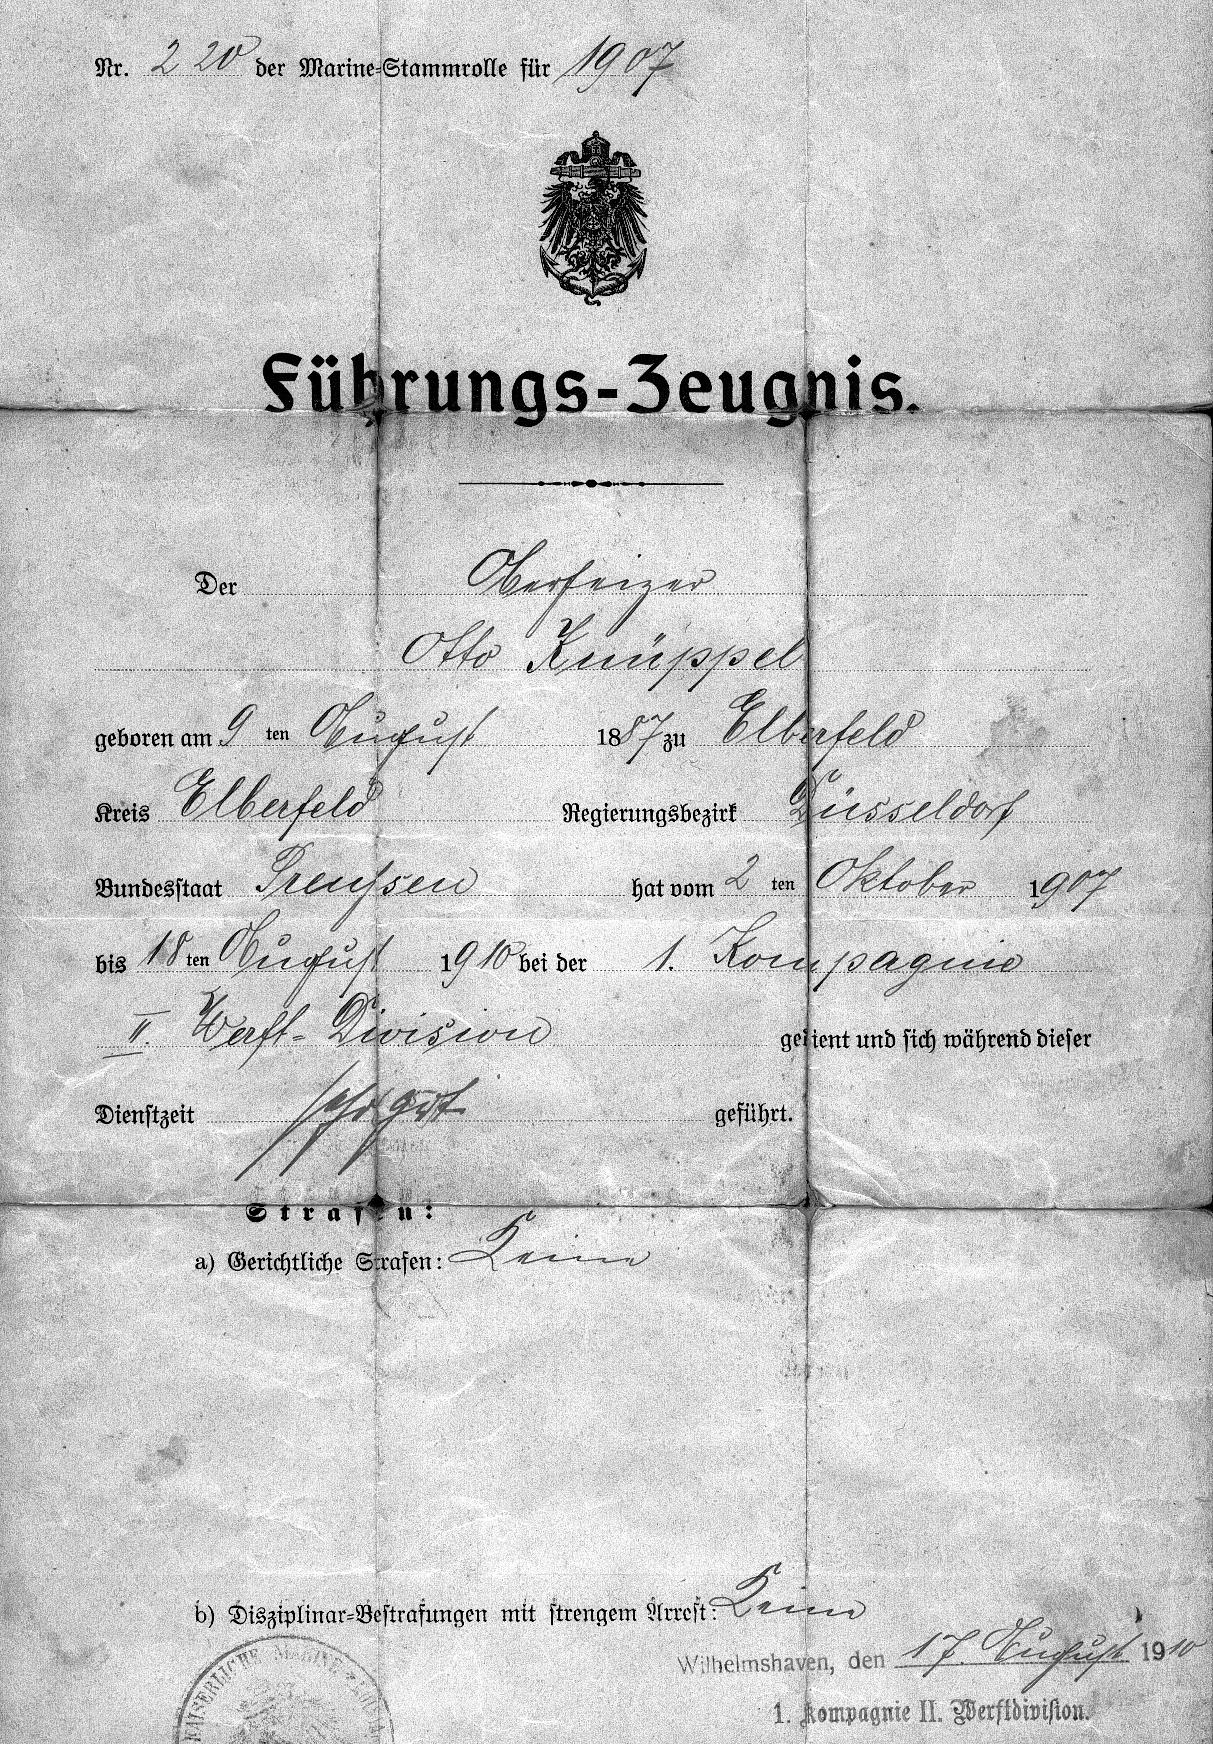 Nr. 220 der Marine-Stammrolle für 1907
Führungs-Zeugnis.
Der Oberheizer
Otto Knüppel
geboren am 9 ten August 1887 zu Elberfeld
Kreis Elberfeld Regierungsbezirk Düsseldorf
Bundesstaat Preussen hat vom 2 ten Oktober 1907
bis 18 ten August 1910 bei der 1. Kompagnie
II. Werft-Division gedient und sich während dieser
Dienstzeit sehr gut geführt.
Strafen:
a) Gerichtliche Strafen: Keine
b) Disziplinar-Bestrafungen mit strengem Arrest: Keine
Wilhelmshaven, den 17. August 1910
KAISERLICHE MARINE
1. Kompagnie II. Werftdivision.